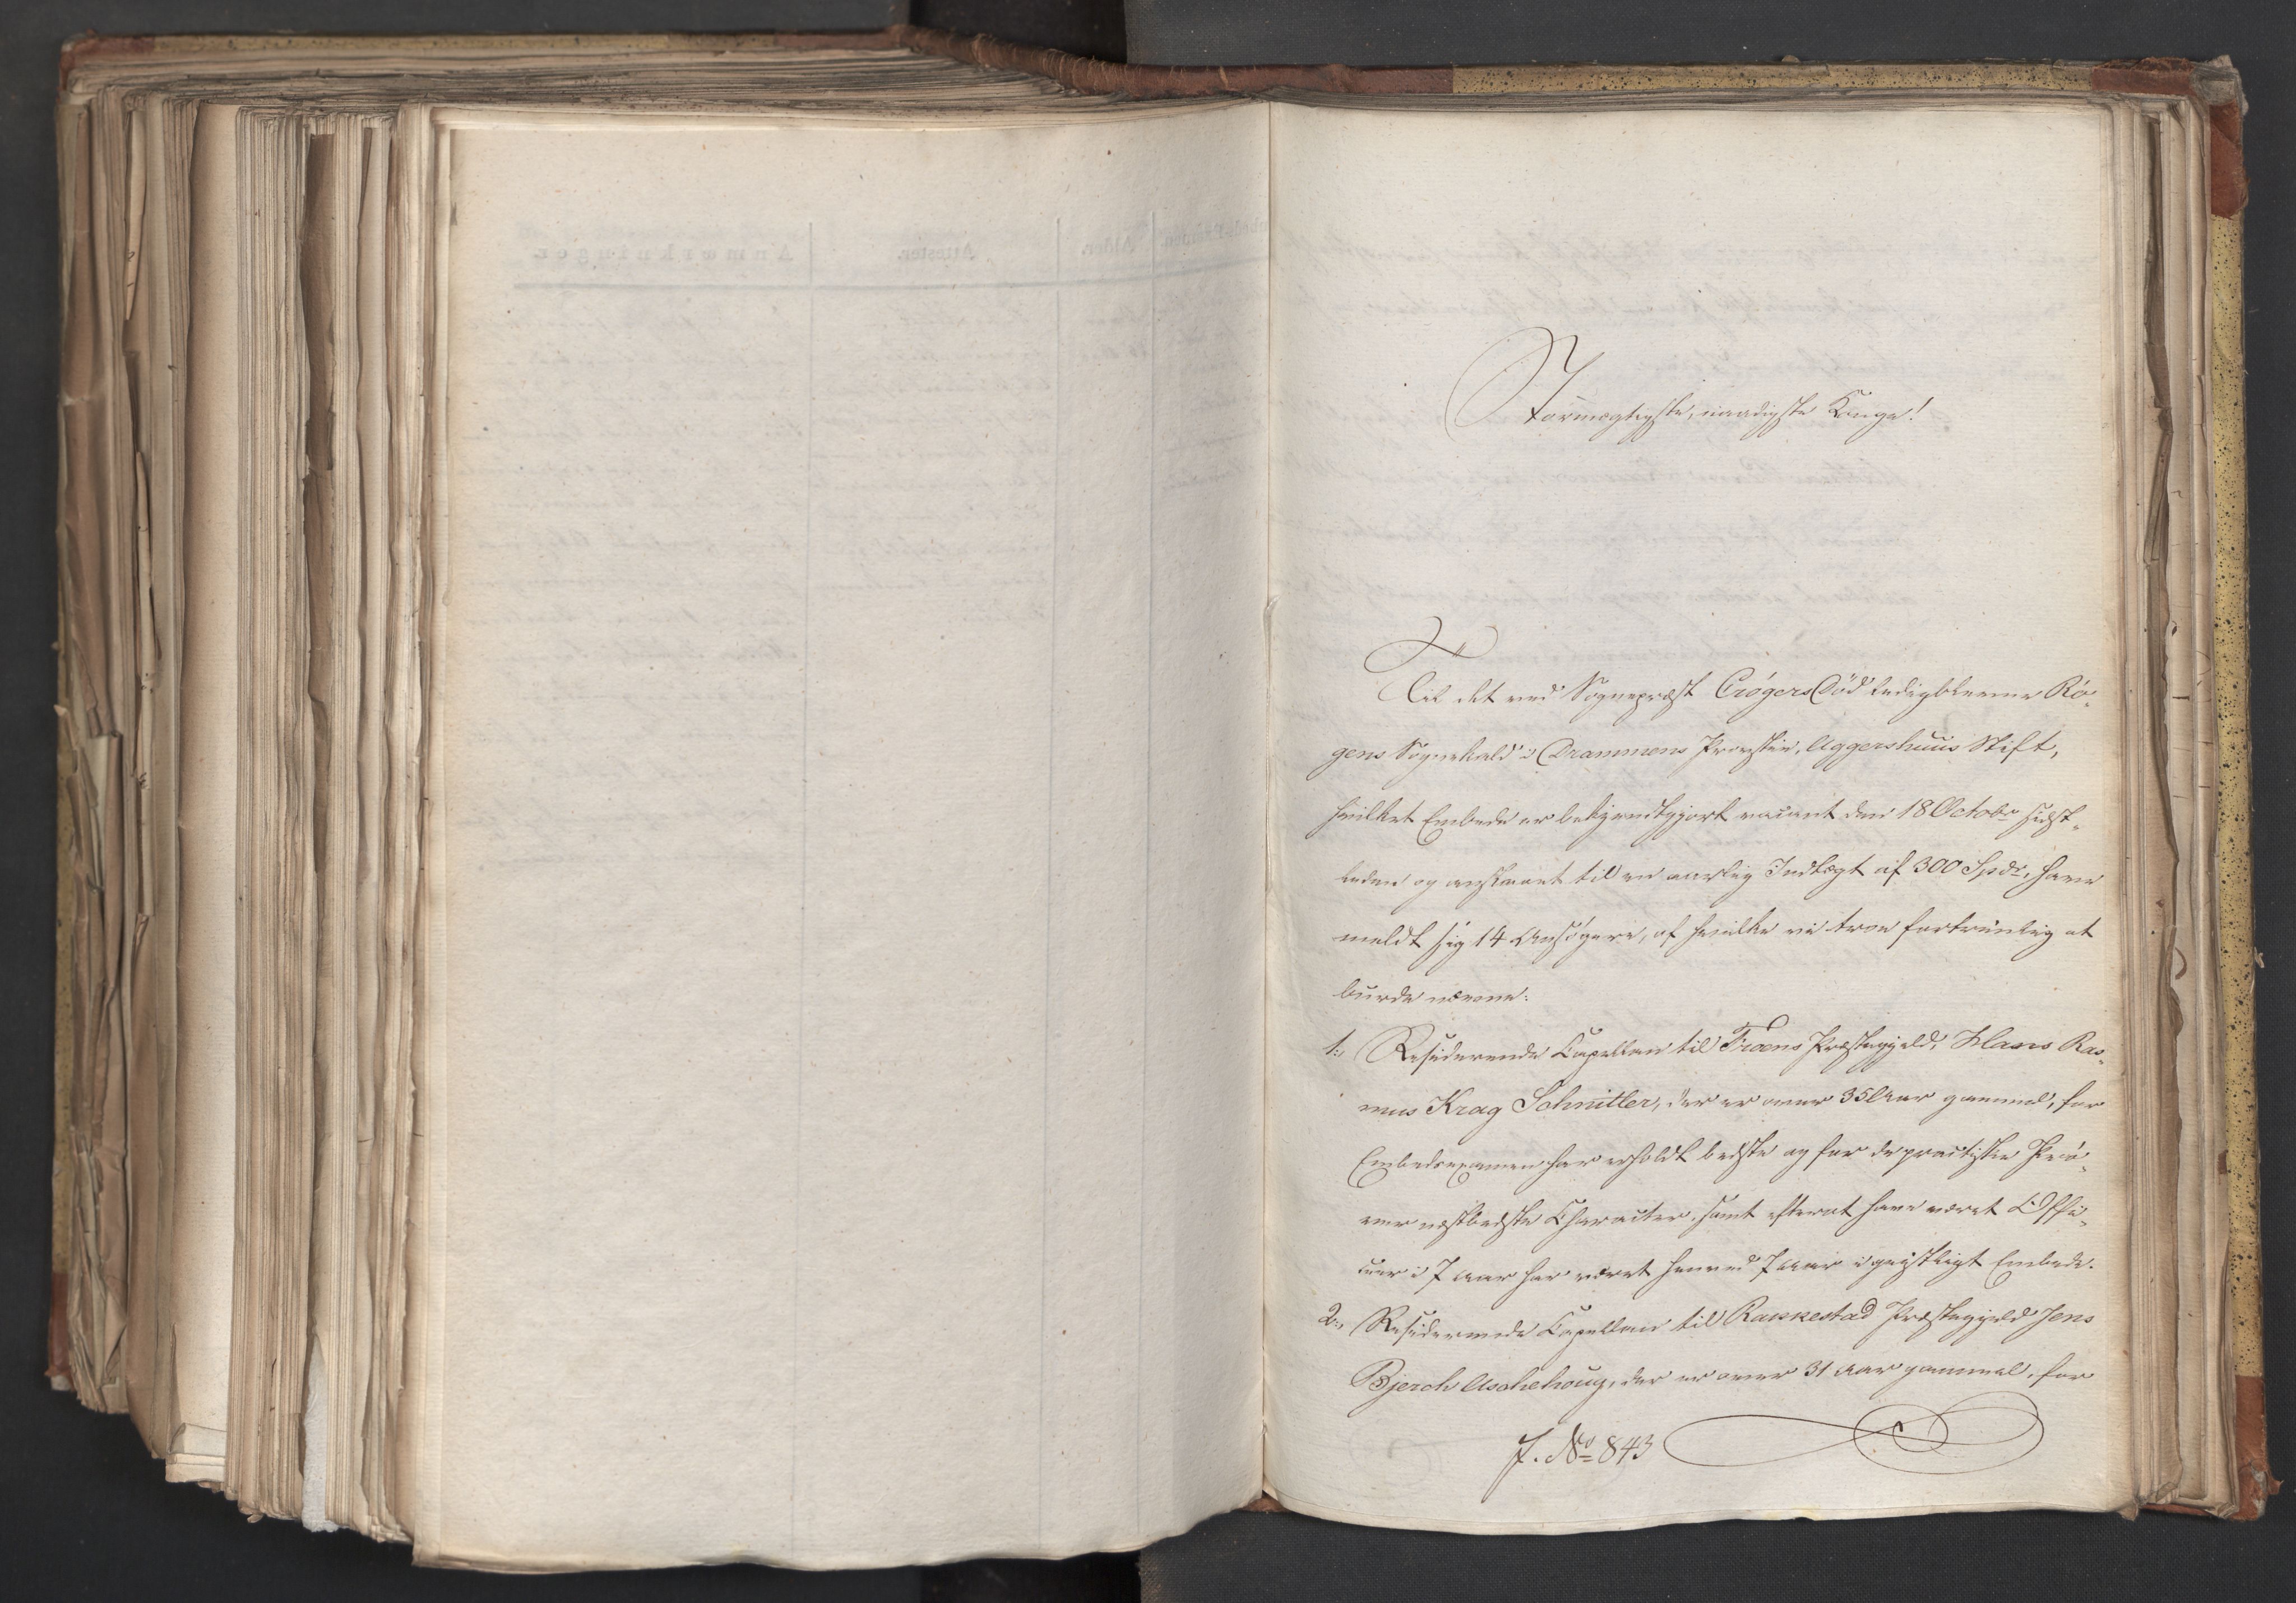 Stormægtigste, naadigste Konge!
Til det ved Sognepræst Crøgers Død ledigblevne Rø-
gens Sognekald i Drammens Provstie, Aggershuus Stift,
hvilket Embede er bekjendtgjort vacant den 18 Octobr sidst-
leden og anslaaet til en aarlig Indtægt af 300 Spdr, have
meldt sig 14 Ansøgere, af hvilke vi troe fortrinlig at
burde nævne:
1., Residerende Capellan til Froens Præstegjeld, Hans Ras-
mus Krag Schnitler, der er over 35 Aar gammel, for
Embedsexamen har erholdt bedste og for de practiske Prø-
ver næstbedste Character, samt efterat have været Offi-
cier i 7 Aar har været henved 7 Aar i geistligt Embede.
2., Residerende Capellan til Rakkestad Præstegjeld Jens
Bjerch Aschehoug, der er over 31 Aar gammel, for
J. No 843